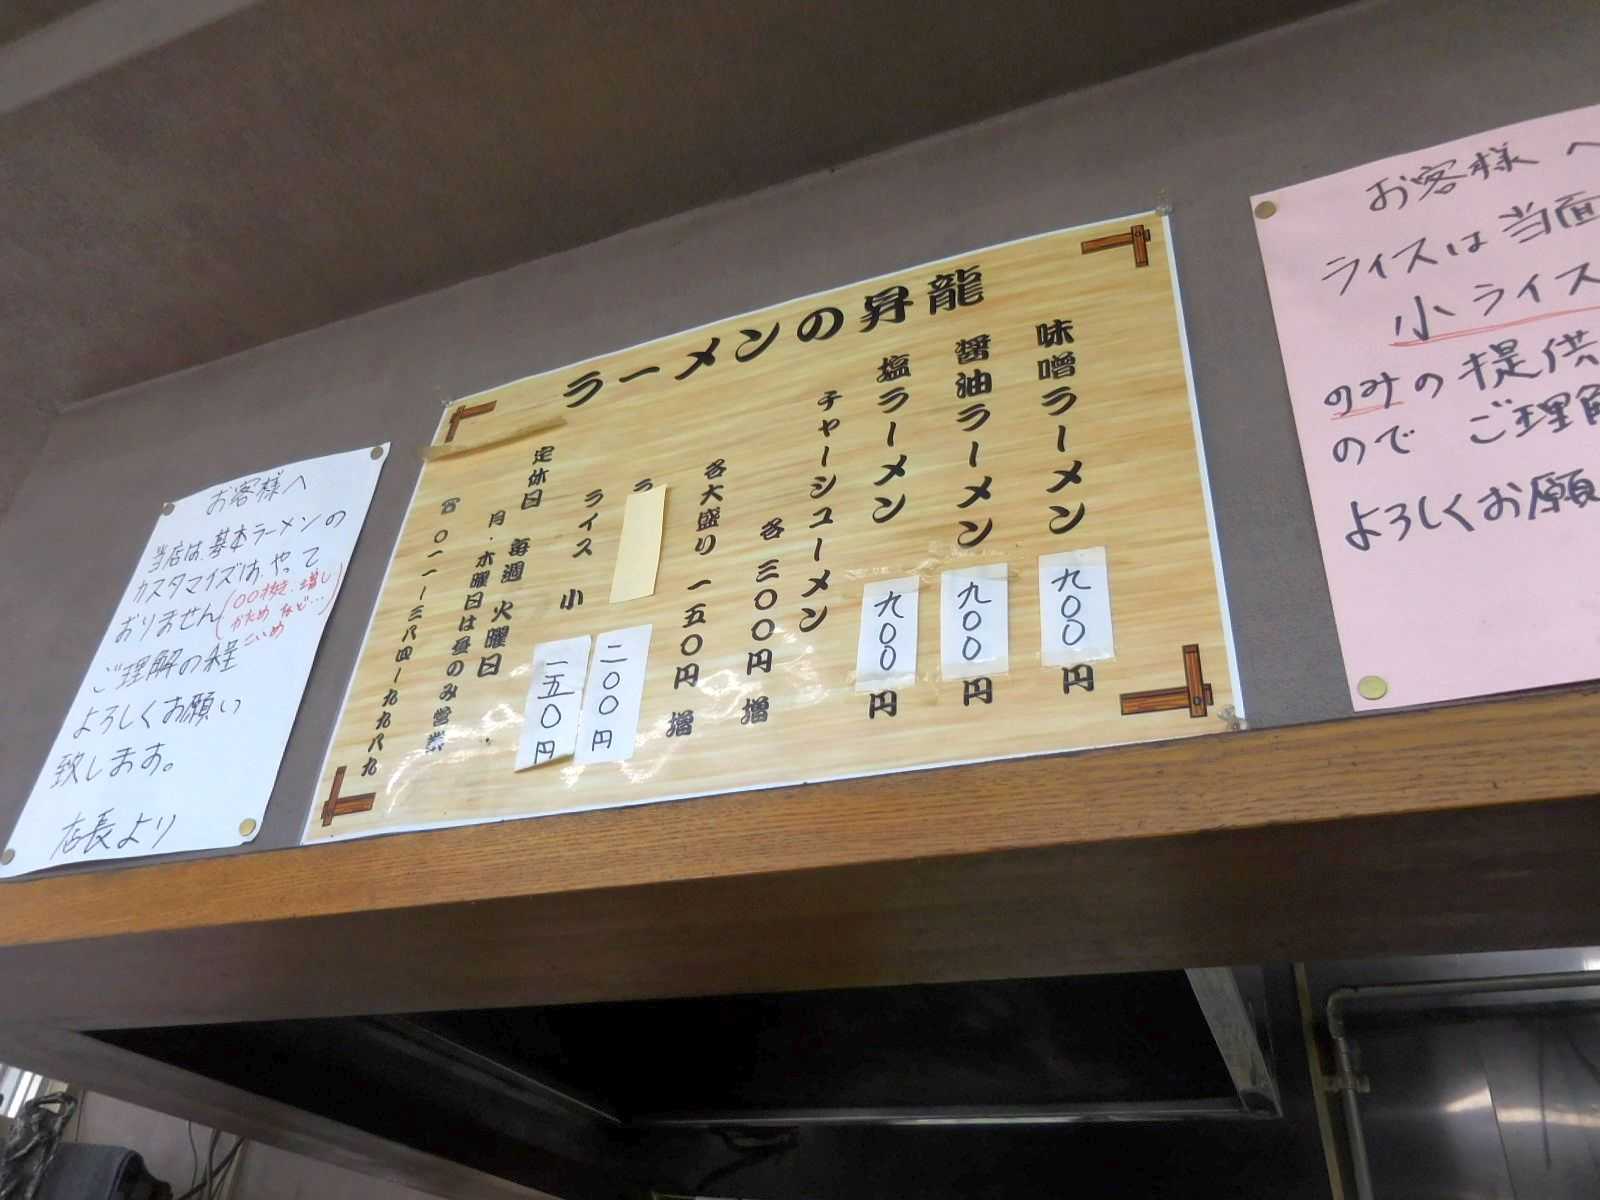 ラーメンの昇龍
味噌ラーメン 九〇〇円
醤油ラーメン 九〇〇円
塩ラーメン 九〇〇円
チャーシューメン
各 三〇〇円 増
各大盛り 一五〇円 増
ラ 二〇〇円
ライス 小 一五〇円
定休日 毎週 火曜日
月・水曜日は昼のみ営業
☎ 〇一一ー三八四ー九九八九
お客様へ
ライスは当面
小ライス
のみの提供
ので ご理解
よろしくお願
お客様へ
当店は、基本ラーメンの
カスタマイズは、やって
おりません(〇〇抜き、増し
かため など…
こいめ)
ご理解の程
よろしくお願い
致します。
店長より